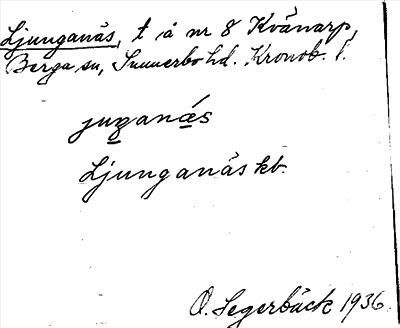 Ljunganäs, t å nr 8 Kvänarp,
Berga sn, Sunnerbo hd. Kronob. l.
juganás
Ljunganäs kb.
O. Segerbäck 1936.